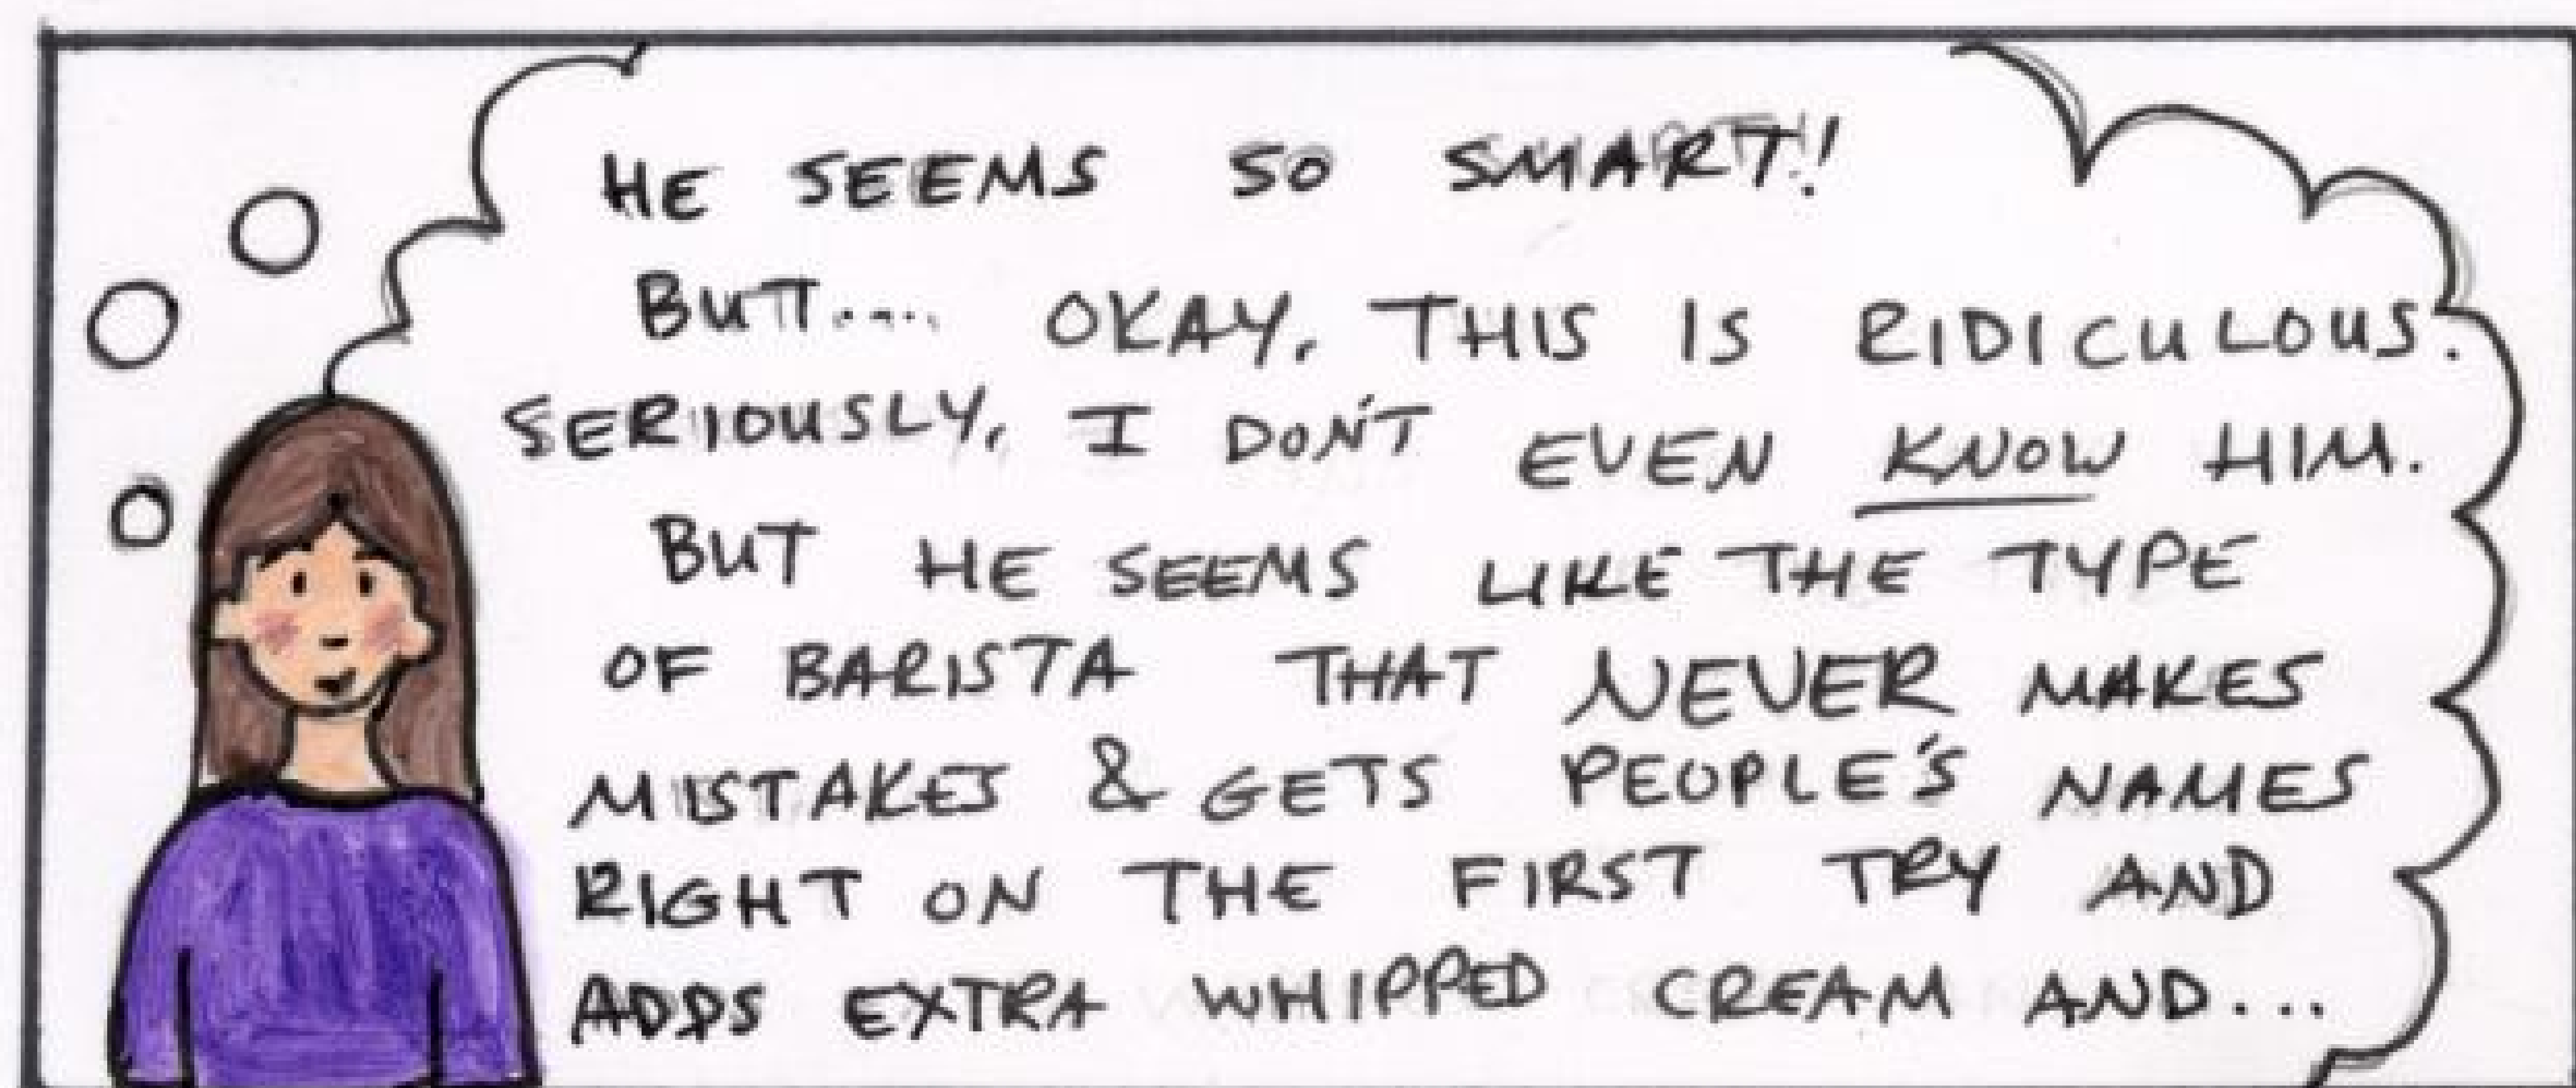 HE SEEMS SO SMART!
BUT.... OKAY, THIS IS RIDICULOUS.
SERIOUSLY, I DON'T EVEN KNOW HIM.
BUT HE SEEMS LIKE THE TYPE
OF BARISTA THAT NEVER MAKES
MISTAKES & GETS PEOPLE'S NAMES
RIGHT ON THE FIRST TRY AND
ADDS EXTRA WHIPPED CREAM AND...